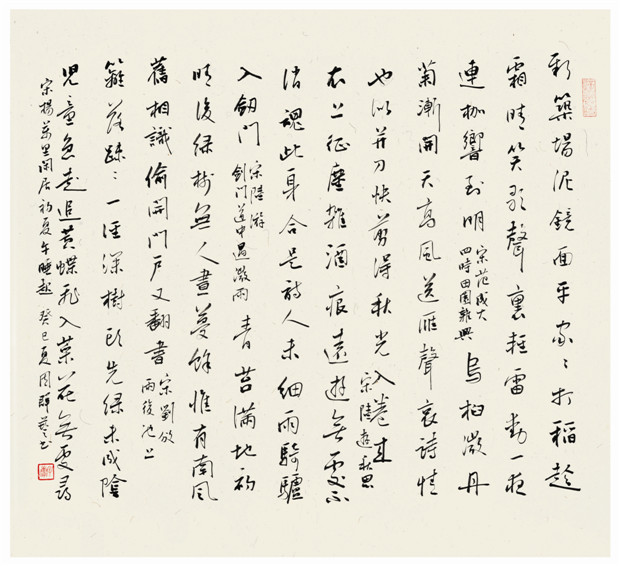 新築場泥鏡面平家々打稻趁
霜晴笑歌聲裏輕雷動一夜
連枷響到明
宋范成大
四時田園雜興
烏桕微丹
菊漸開天高風送雁聲哀詩情
也似并刀快剪得秋光入卷來
宋陸遊秋思
衣上征塵雜酒痕遠遊無處不
消魂此身合是詩人未細雨騎驢
入劍門
宋陸游
劍門道中遇微雨
青苔滿地初
晴後綠樹無人晝夢餘惟有南風
舊相識偷開門戶又翻書
宋劉攽
雨後池上
籬落疎々一徑深樹頭先綠未成陰
児童急走追黃蝶飛入菜花無處尋
宋楊萬里閑居初夏午睡起 癸巳夏周輝